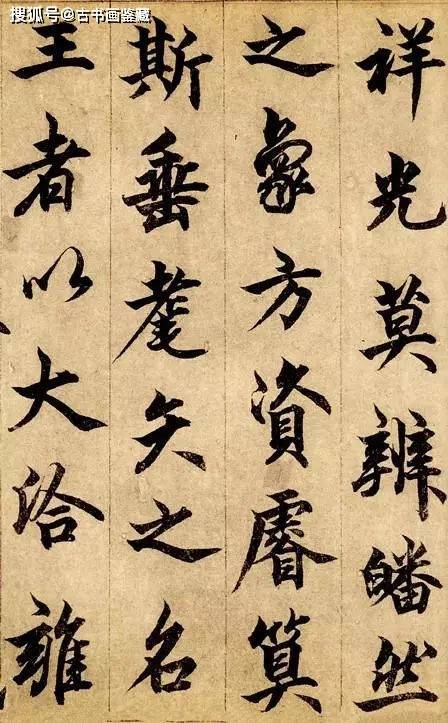 搜狐号@古书画鉴藏
祥光莫辨皤然
之象方資睿算
斯垂耄矣之名
王者以大洽雍